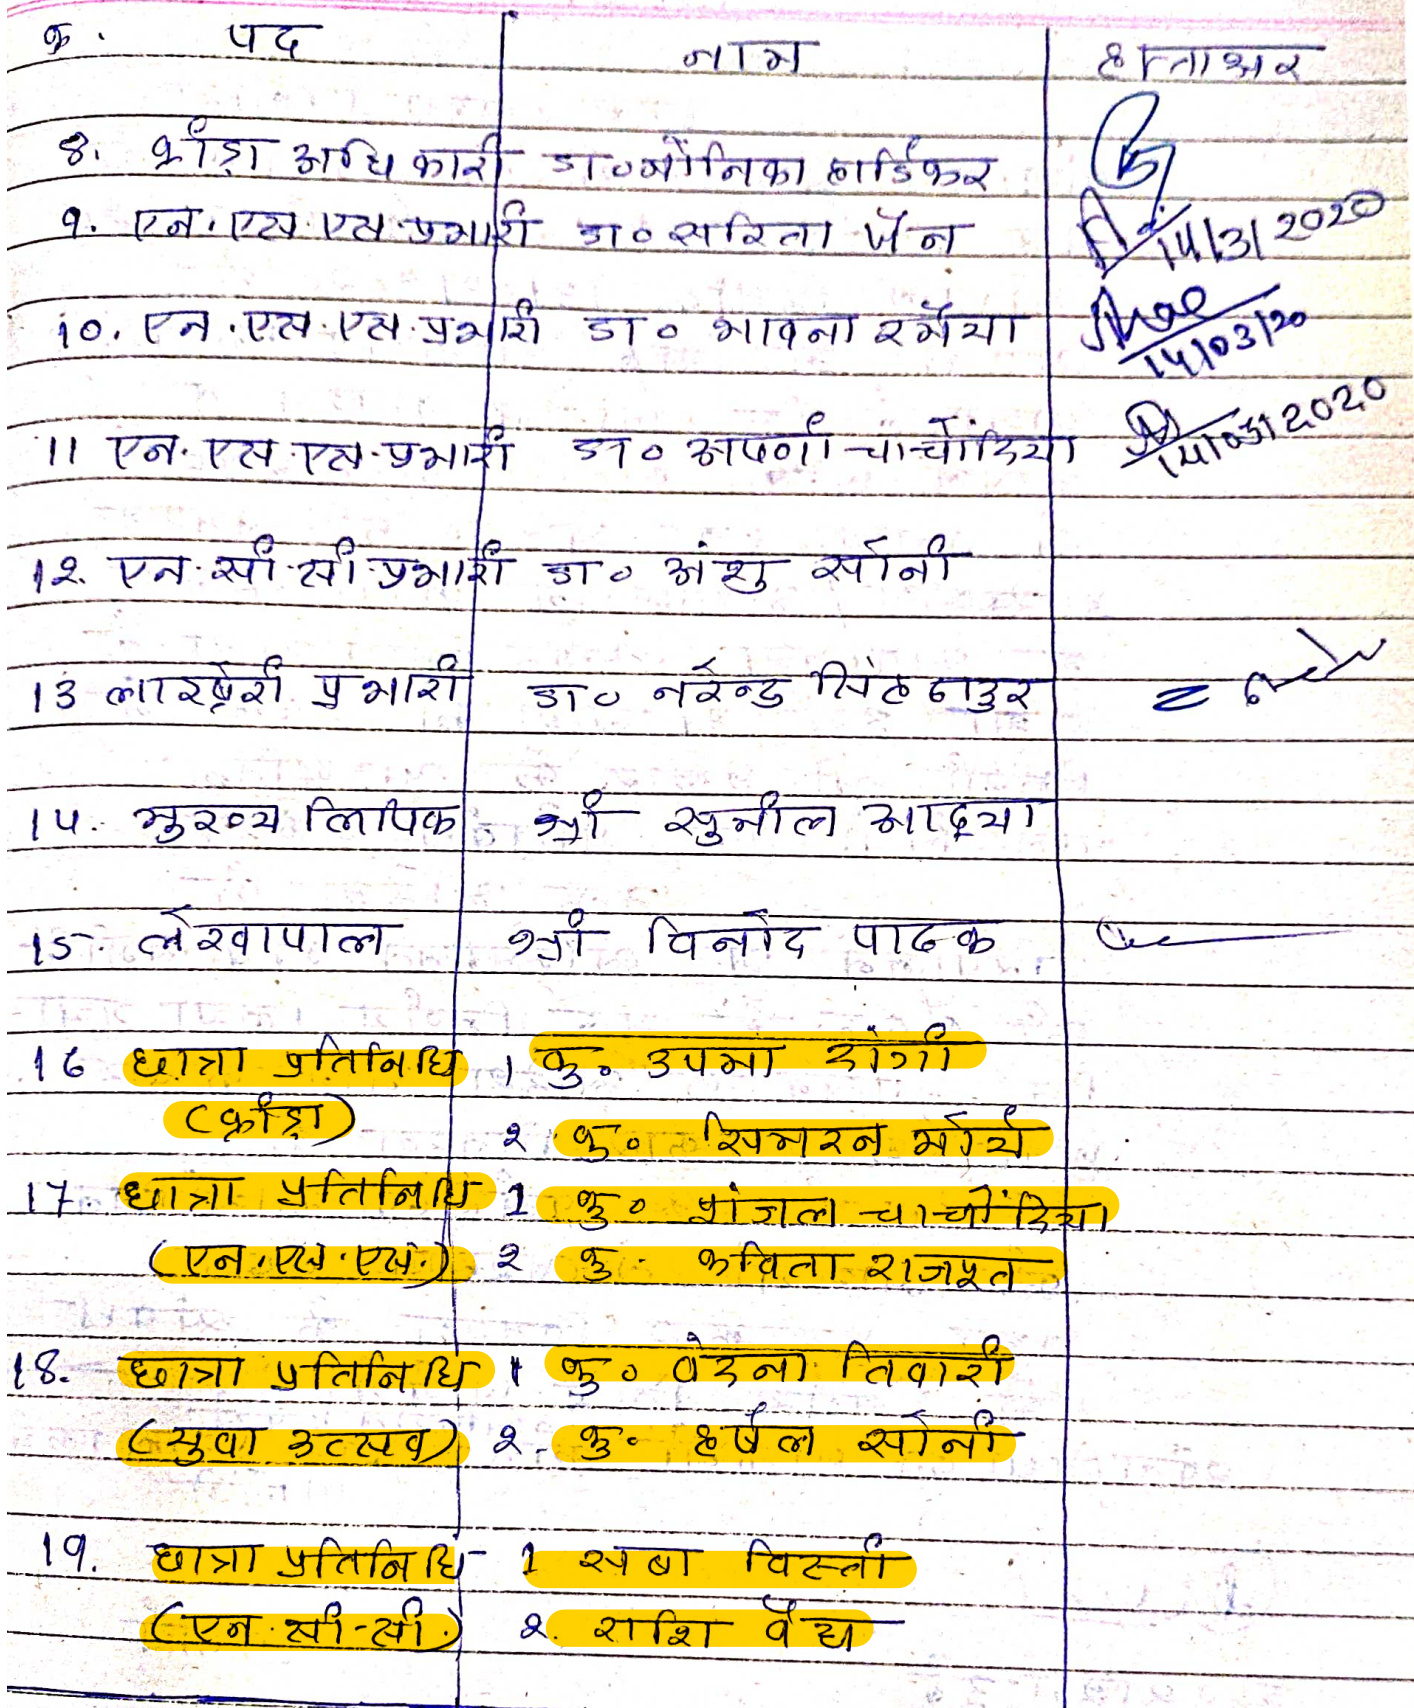 क्र. पद नाम हस्ताक्षर
8. क्रीड़ा अधिकारी डा० मोनिका हार्डिकर
9. एन.एस.एस.प्रभारी डा० सरिता जैन 14/3/2020
10. एन.एस.एस.प्रभारी डा० भावना रमैया 14/03/20
11 एन.एस.एस.प्रभारी डा० अपर्णा चाचोंदिया 14/03/2020
12. एन.सी.सी.प्रभारी डा० अंशु सोनी
13 लाइब्रेरी प्रभारी डा० नरेन्द्र सिंह ठाकुर
14. मुख्य लिपिक श्री सुनील आदया
15. लेखापाल श्री विनोद पाठक
16 छात्रा प्रतिनिधि 1 कु० उपमा
(क्रीड़ा) 2 कु० सिमरन मौर्य
17. छात्रा प्रतिनिधि 1 कु० प्रांजल चाचोंदिया
(एन.एस.एस.) 2 कु. कविता राजपूत
18. छात्रा प्रतिनिधि 1 कु० वेदना तिवारी
(युवा उत्सव) 2. कु. हर्षल सोनी
19. छात्रा प्रतिनिधि 1 सबा
(एन.सी-सी.) 2. राशि वैद्य